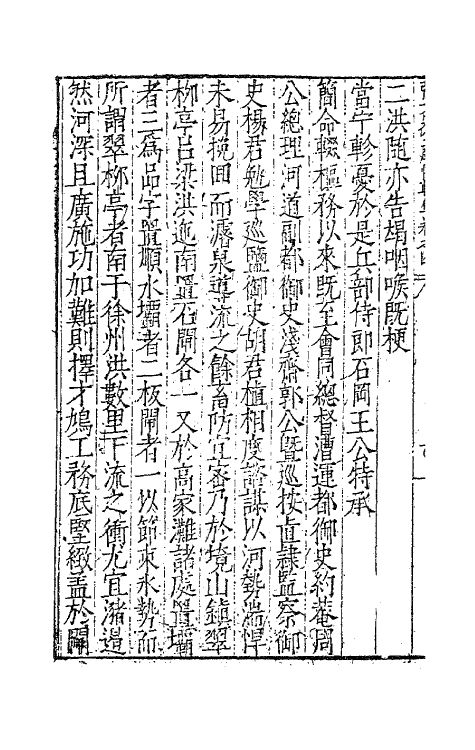 二洪随亦告竭咽喉既梗
當宁軫憂於是兵部侍郎石岡王公特承
簡命輟樞務以來既至會同總督漕運都御史約菴周
公總理河道副都御史淺齋郭公暨巡按直隸監察御
史楊君勉學巡鹽御史胡君植相度諮謀以河勢湍悍
未易挽回而濬泉導流之餘畜防宜審乃於境山鎮翠
柳亭呂梁洪迤南置石閘各一又於高家灘諸處置壩
者三為品字置順水壩者二板閘者一以節束水勢而
所謂翠柳亭者南于徐州洪數里下流之衝尤宜潴遏
然河深且廣施功加難則擇才鳩工務底堅緻盖於閘